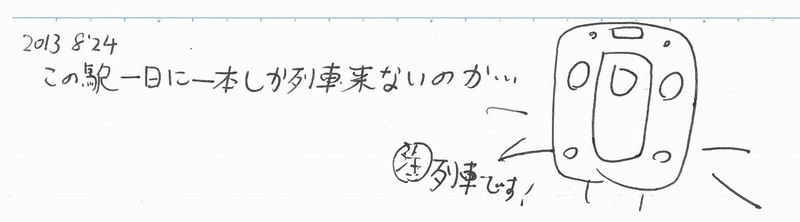 2013 8'24
この駅一日に一本しか列車来ないのか…
注 列車です!